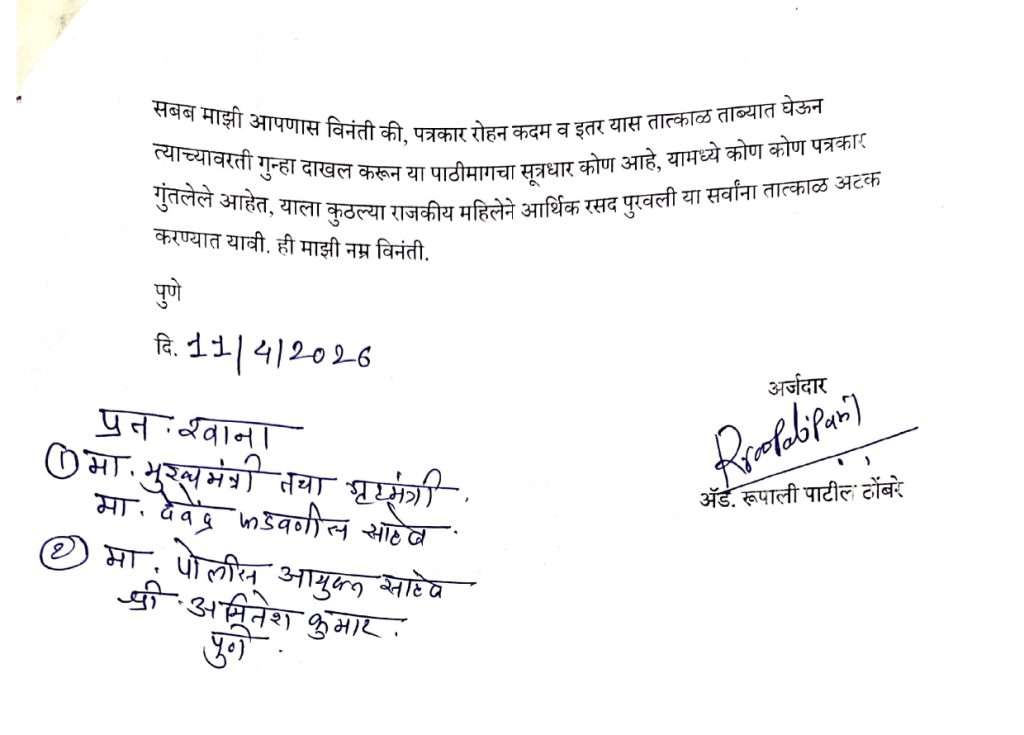 सबब माझी आपणास विनंती की, पत्रकार रोहन कदम व इतर यास तात्काळ ताब्यात घेऊन
त्याच्यावरती गुन्हा दाखल करून या पाठीमागचा सूत्रधार कोण आहे, यामध्ये कोण कोण पत्रकार
गुंतलेले आहेत, याला कुठल्या राजकीय महिलेने आर्थिक रसद पुरवली या सर्वांना तात्काळ अटक
करण्यात यावी. ही माझी नम्र विनंती.
पुणे
दि. 11/4/2026
अर्जदार
अ‍ॅड. रूपाली पाटील ठोंबरे
प्रत : रवाना
① मा. मुख्यमंत्री तथा गृहमंत्री.
मा. देवेंद्र फडवणीस साहेब.
② मा. पोलीस आयुक्त साहेब
श्री. अमितेश कुमार.
पुणे.